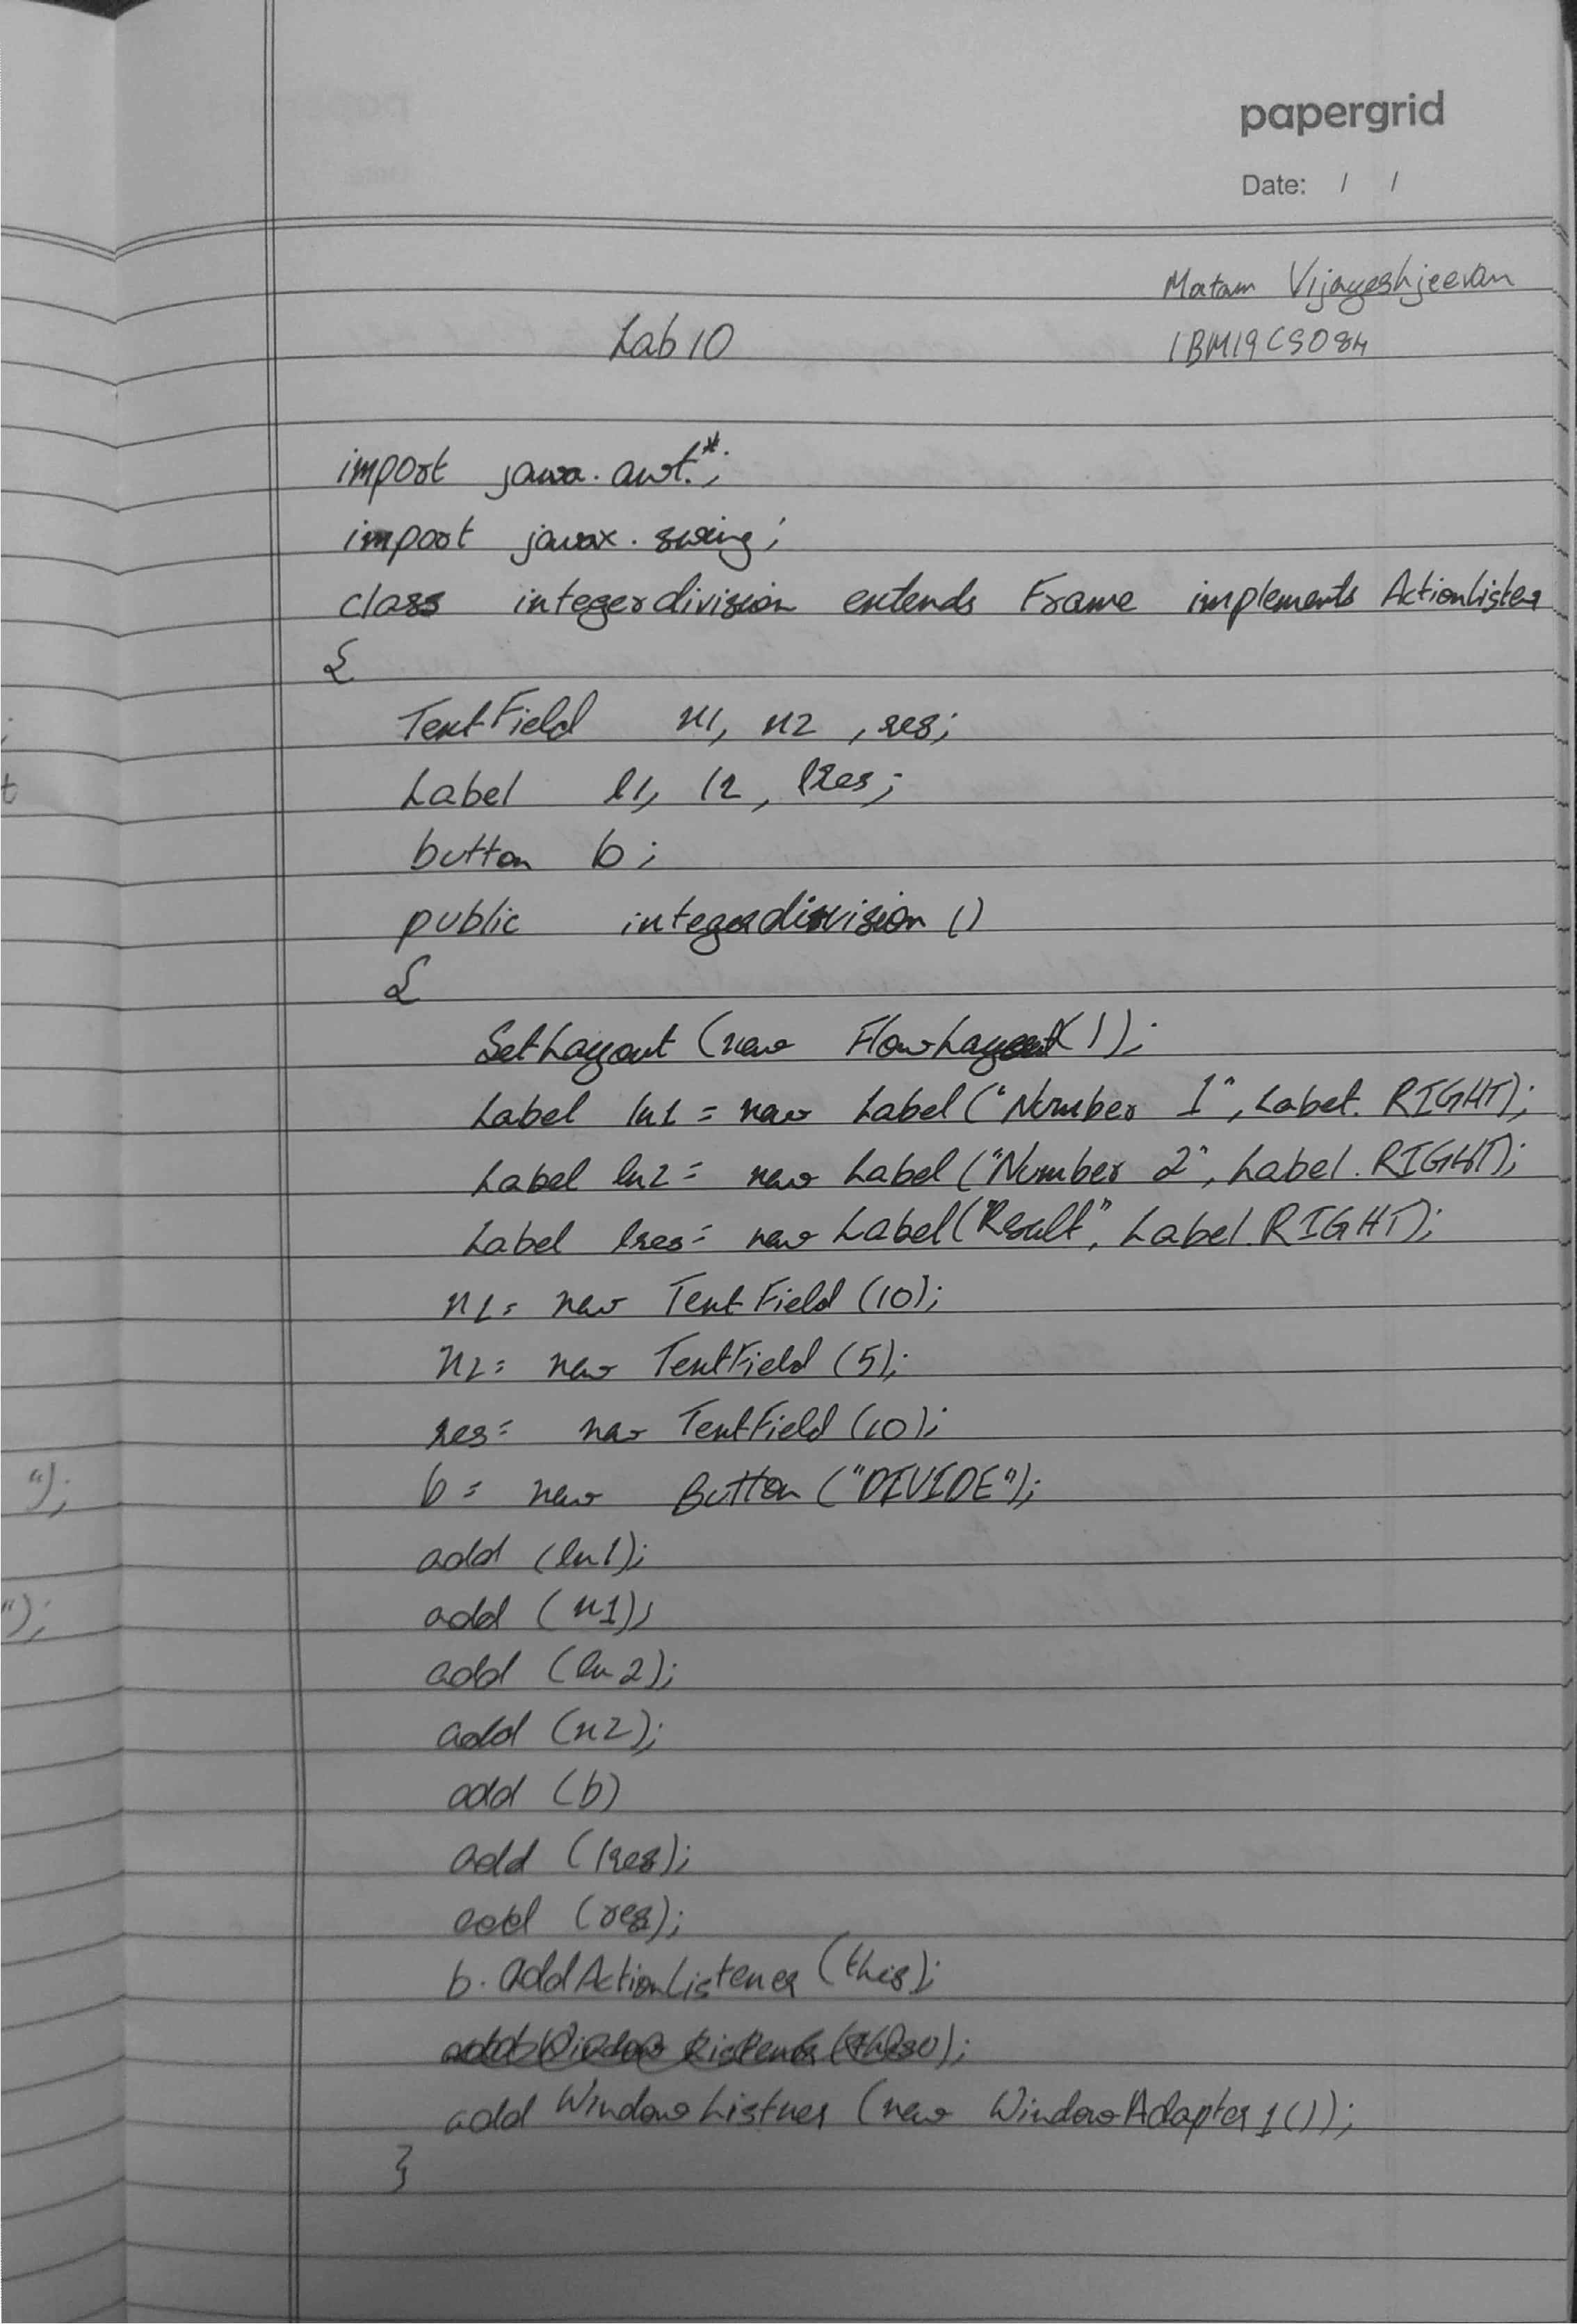 papergrid
Date: / /
Matam Vijayeshjeevan
Lab 10
1BM19CS084
import java.awt.*;
import javax.swing;
class integerdivision extends Frame implements ActionListen
{
TextField n1, n2, res;
Label l1, l2, lRes;
button b;
public integerdivision ()
{
SetLayout (new FlowLayout());
Label ln1 = new Label ("Number 1", Label. RIGHT);
Label ln2 = new Label ("Number 2", Label. RIGHT);
Label lres = new Label ("Result", Label. RIGHT);
n1 = new TextField (10);
n2 = new TextField (5);
res = new TextField (10);
b = new Button ("DIVIDE");
");
add (ln1);
add (n1);
");
add (ln2);
add (n2);
add (b)
add (lres);
add (res);
b. addActionListener (this);
add WindowListner (new WindowAdapter1());
}